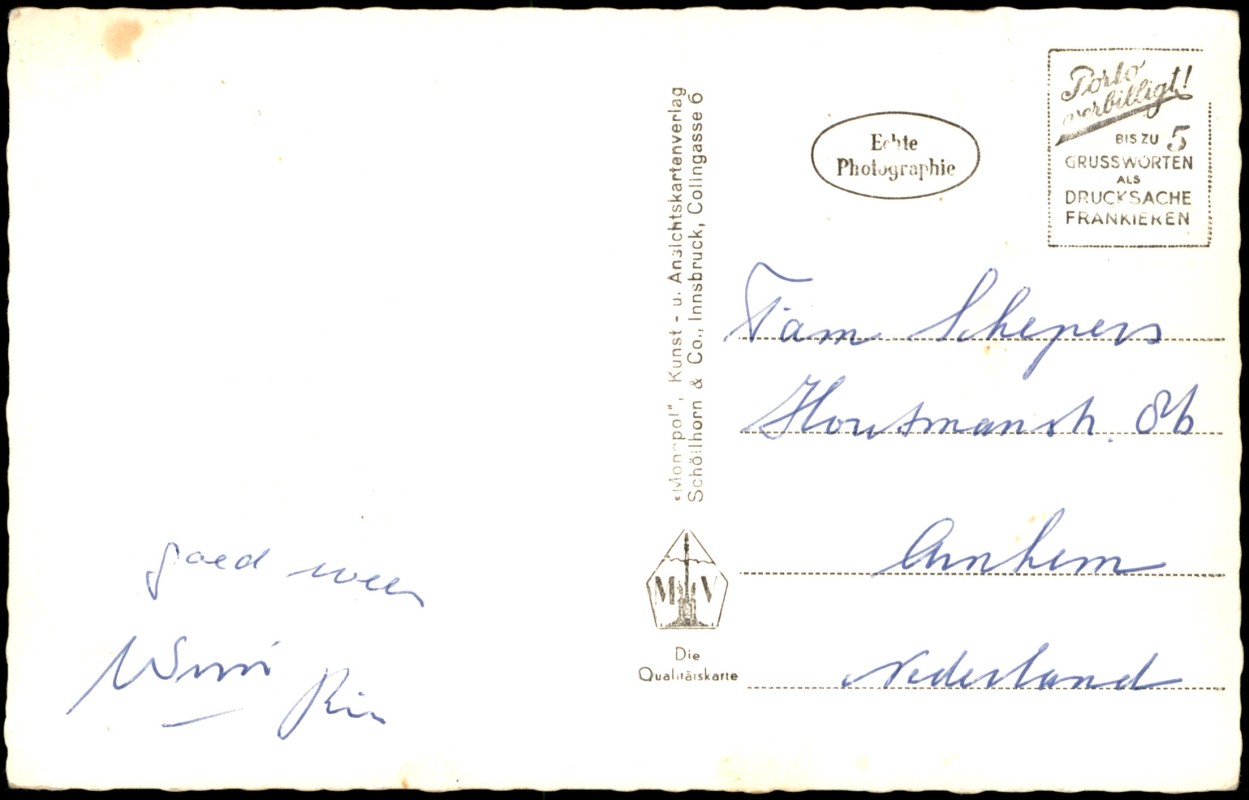 Porto
verbilligt!
BIS ZU 5
GRUSSWORTEN
ALS
DRUCKSACHE
FRANKIEREN
Echte
Photographie
«Monopol", Kunst - u. Ansichtskartenverlag
Schöllhorn & Co., Innsbruck, Colingasse 6
Fam Schepers
Houtmanstr. 86
Arnhem
Nederland
goed weer
Wim
Rin
M V
Die
Qualitätskarte